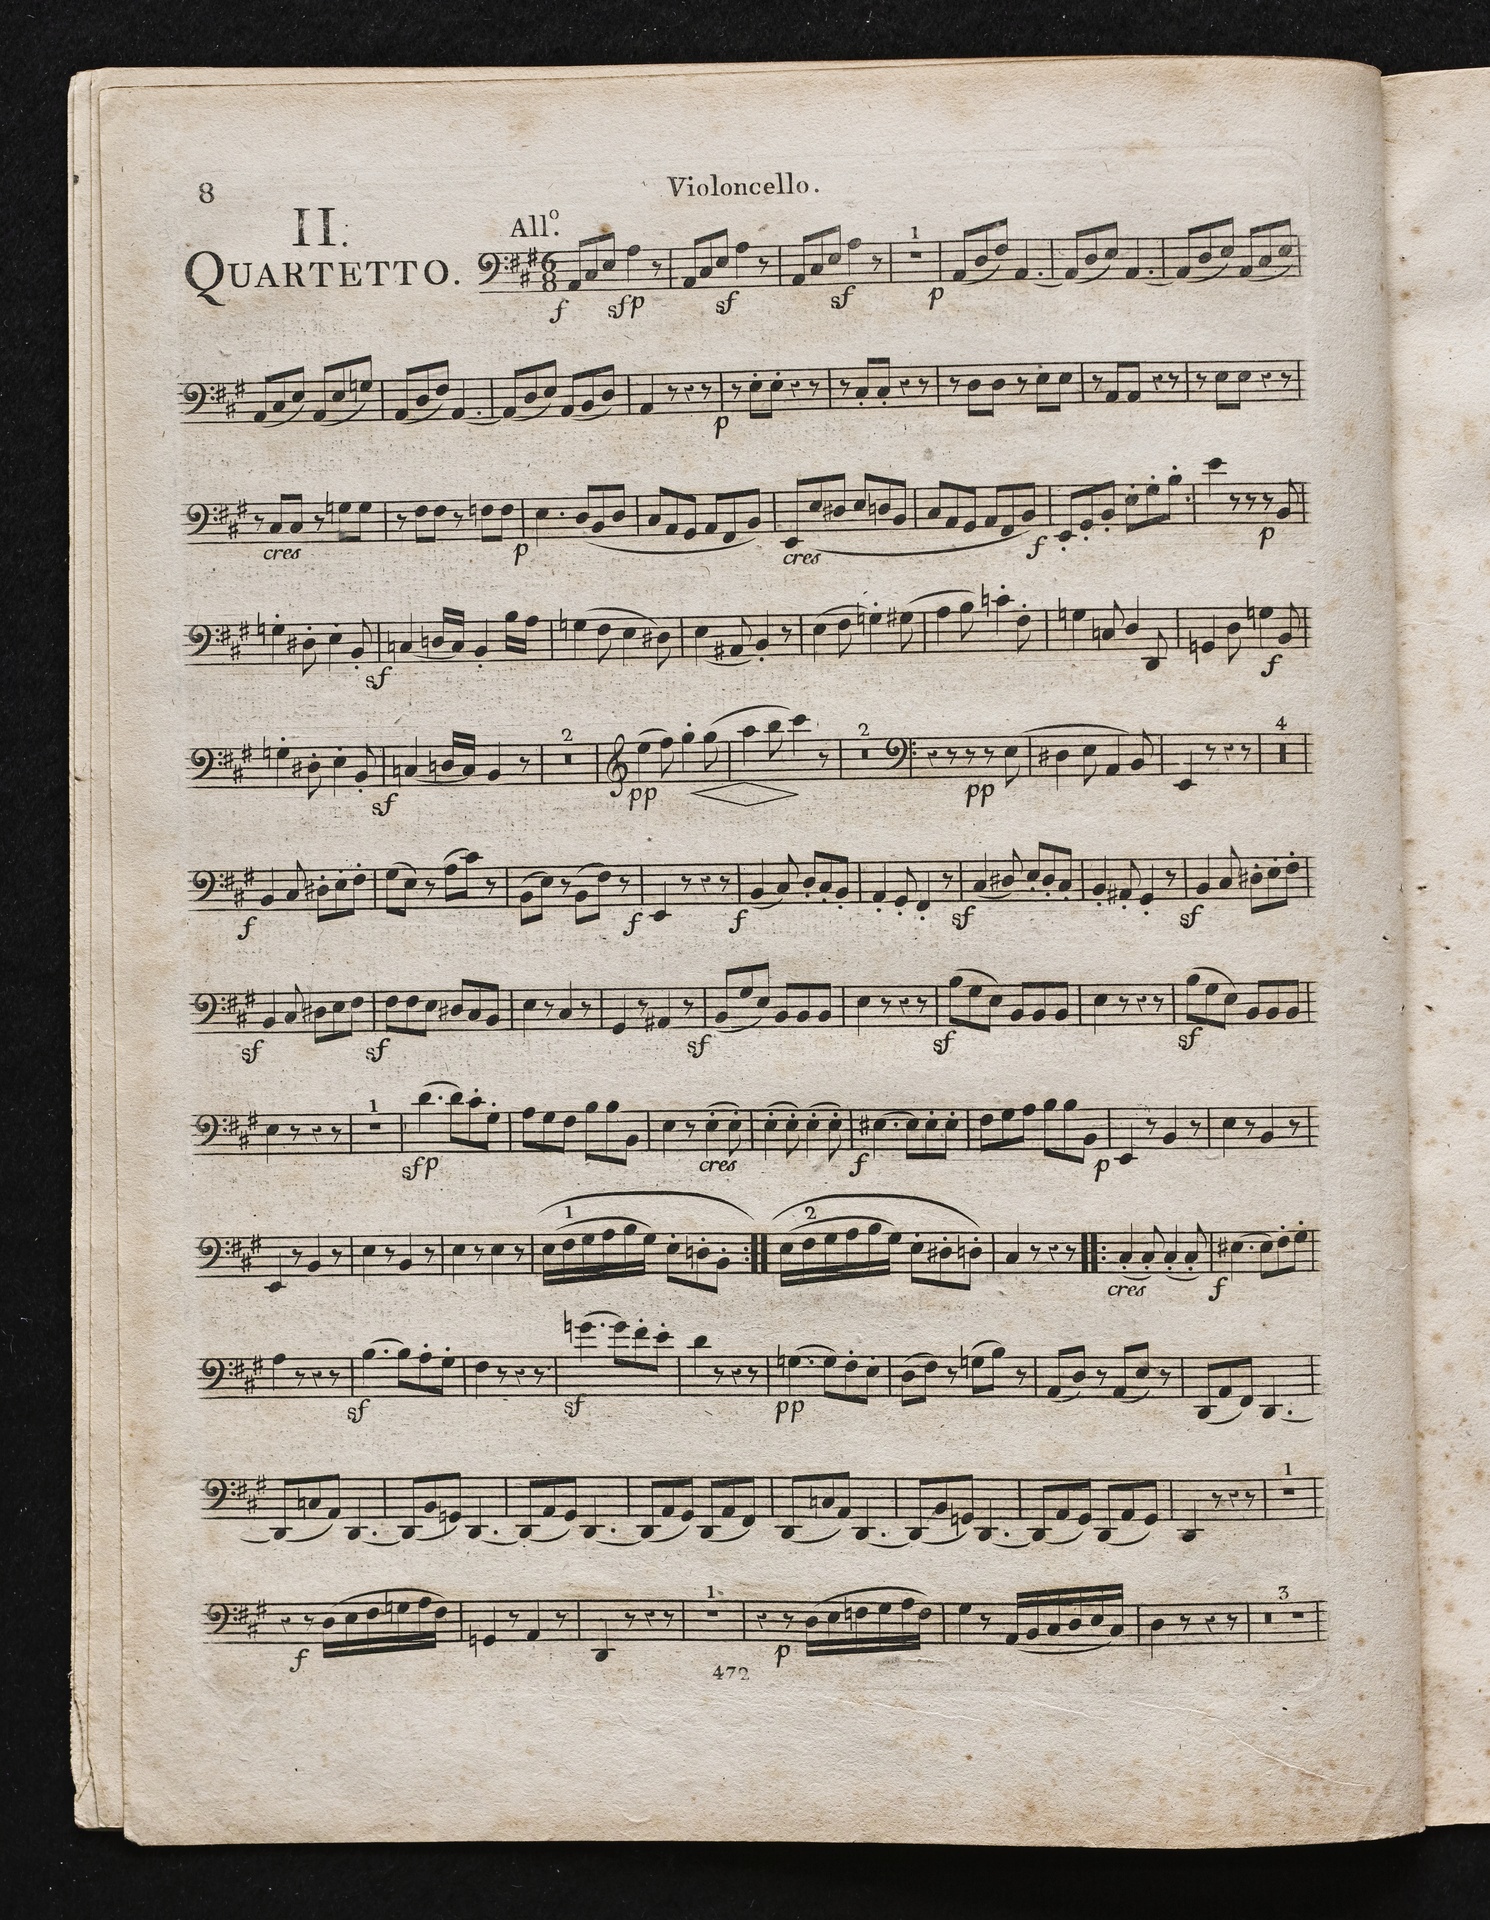 8
Violoncello.
II.
QUARTETTO.
All.º
6
8
1
f sfp sf sf p
p
cres p cres f p
sf f
2 2 4
sf pp pp
f f f sf sf
sf sf sf sf sf
1
sfp cres f p
1 2
cres f
sf sf pp
1
1 3
f p
472